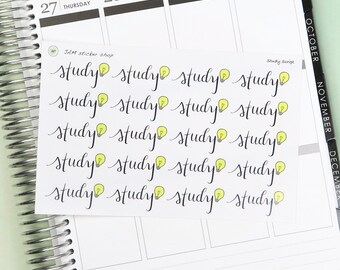 27 THURSDAY 28
JCM sticker shop
Study Script
study study study study
study study study study
study study study study
study study study study
study study study study
OCTOBER
NOVEMBER
DECEMBER